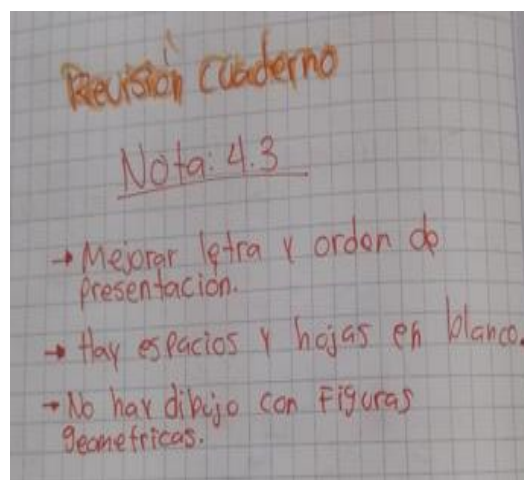 Revisión Cuaderno
Nota: 4.3
→ Mejorar letra y orden de
presentación.
→ Hay espacios y hojas en blanco.
→ No hay dibujo con Figuras
geometricas.